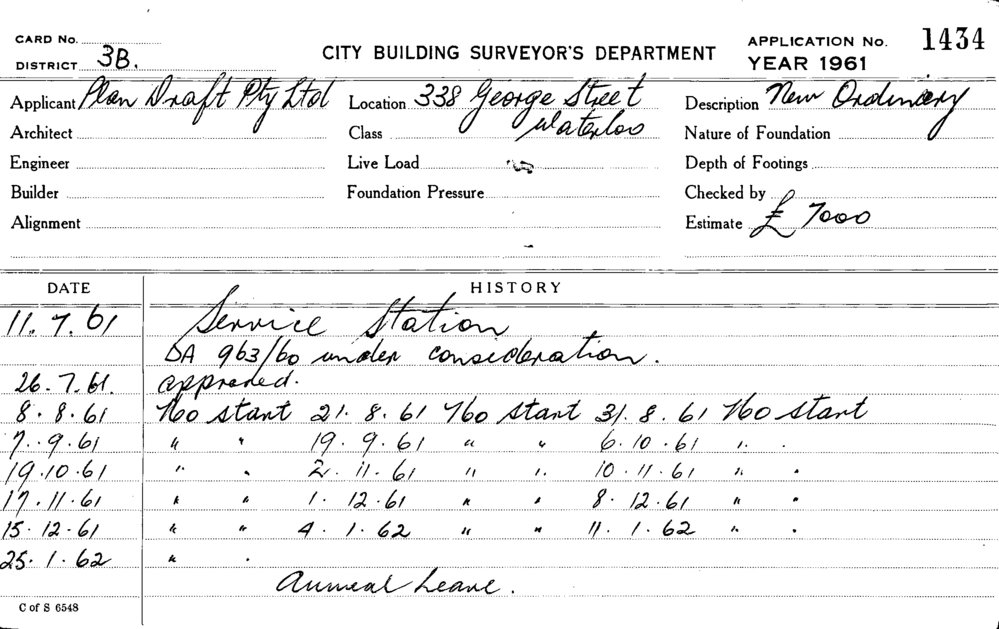 CARD No.
DISTRICT 3B.
CITY BUILDING SURVEYOR'S DEPARTMENT
APPLICATION No. 1434
YEAR 1961
Applicant Plan Draft Pty Ltd Location 338 George Street Description New Ordinary
Architect Class Waterloo Nature of Foundation
Engineer Live Load Depth of Footings
Builder Foundation Pressure Checked by
Alignment Estimate £ 7000
DATE HISTORY
11.7.61 Service Station
DA 963/60 under consideration.
26.7.61. approved.
8.8.61 No start 21.8.61 No start 31.8.61 No start
7.9.61 " " 19.9.61 " " 6.10.61 " "
19.10.61 " " 2.11.61 " " 10.11.61 " "
17.11.61 " " 1.12.61 " " 8.12.61 " "
15.12.61 " " 4.1.62 " " 11.1.62 " "
25.1.62 " "
Annual Leave.
C of S 6548